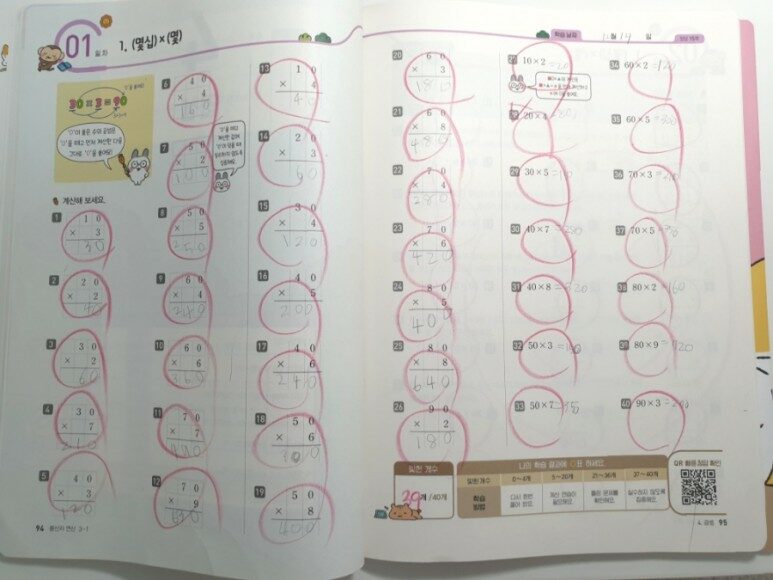 01 일차
1. (몇십)×(몇)
계산해 보세요.
1
1 0
× 3
3 0
2
2 0
× 2
4 0
3
3 0
× 2
6 0
4
3 0
× 7
2 1 0
5
4 0
× 3
1 2 0
6
4 0
× 4
1 6 0
7
5 0
× 2
1 0 0
8
5 0
× 5
2 5 0
9
6 0
× 4
2 4 0
10
6 0
× 6
3 6 0
11
7 0
× 7
12
7 0
× 9
13
1 0
× 4
4 0
14
2 0
× 3
6 0
15
3 0
× 4
1 2 0
16
4 0
× 5
2 0 0
17
4 0
× 6
2 4 0
18
5 0
× 6
19
5 0
× 8
4 0 0
94 3-1
학습 날짜 월 일
20
6 0
× 3
1 8 0
21
6 0
× 8
4 8 0
22
7 0
× 4
2 8 0
23
7 0
× 6
4 2 0
24
8 0
× 5
4 0 0
25
8 0
× 8
6 4 0
26
9 0
× 2
1 8 0
27 10×2 =20
28 20×4
29 30×5
30 40×7 =280
31 40×8 =320
32 50×3 =150
33 50×7 =35
34 60×2 =120
35 60×5 =300
36 70×3
37 70×5
38 80×2 =160
39 80×9 =720
40 90×3
맞힌 개수
개 /40개
나의 학습 결과에 ○표 하세요.
맞힌 개수 0~4개 5~20개 21~36개 37~40개
학습 방법
다시 한번 풀어 봐요.
계산 연습이 필요해요.
틀린 문제를 확인해요.
실수하지 않도록 집중해요.
QR 빠른정답 확인
4. 곱셈 95